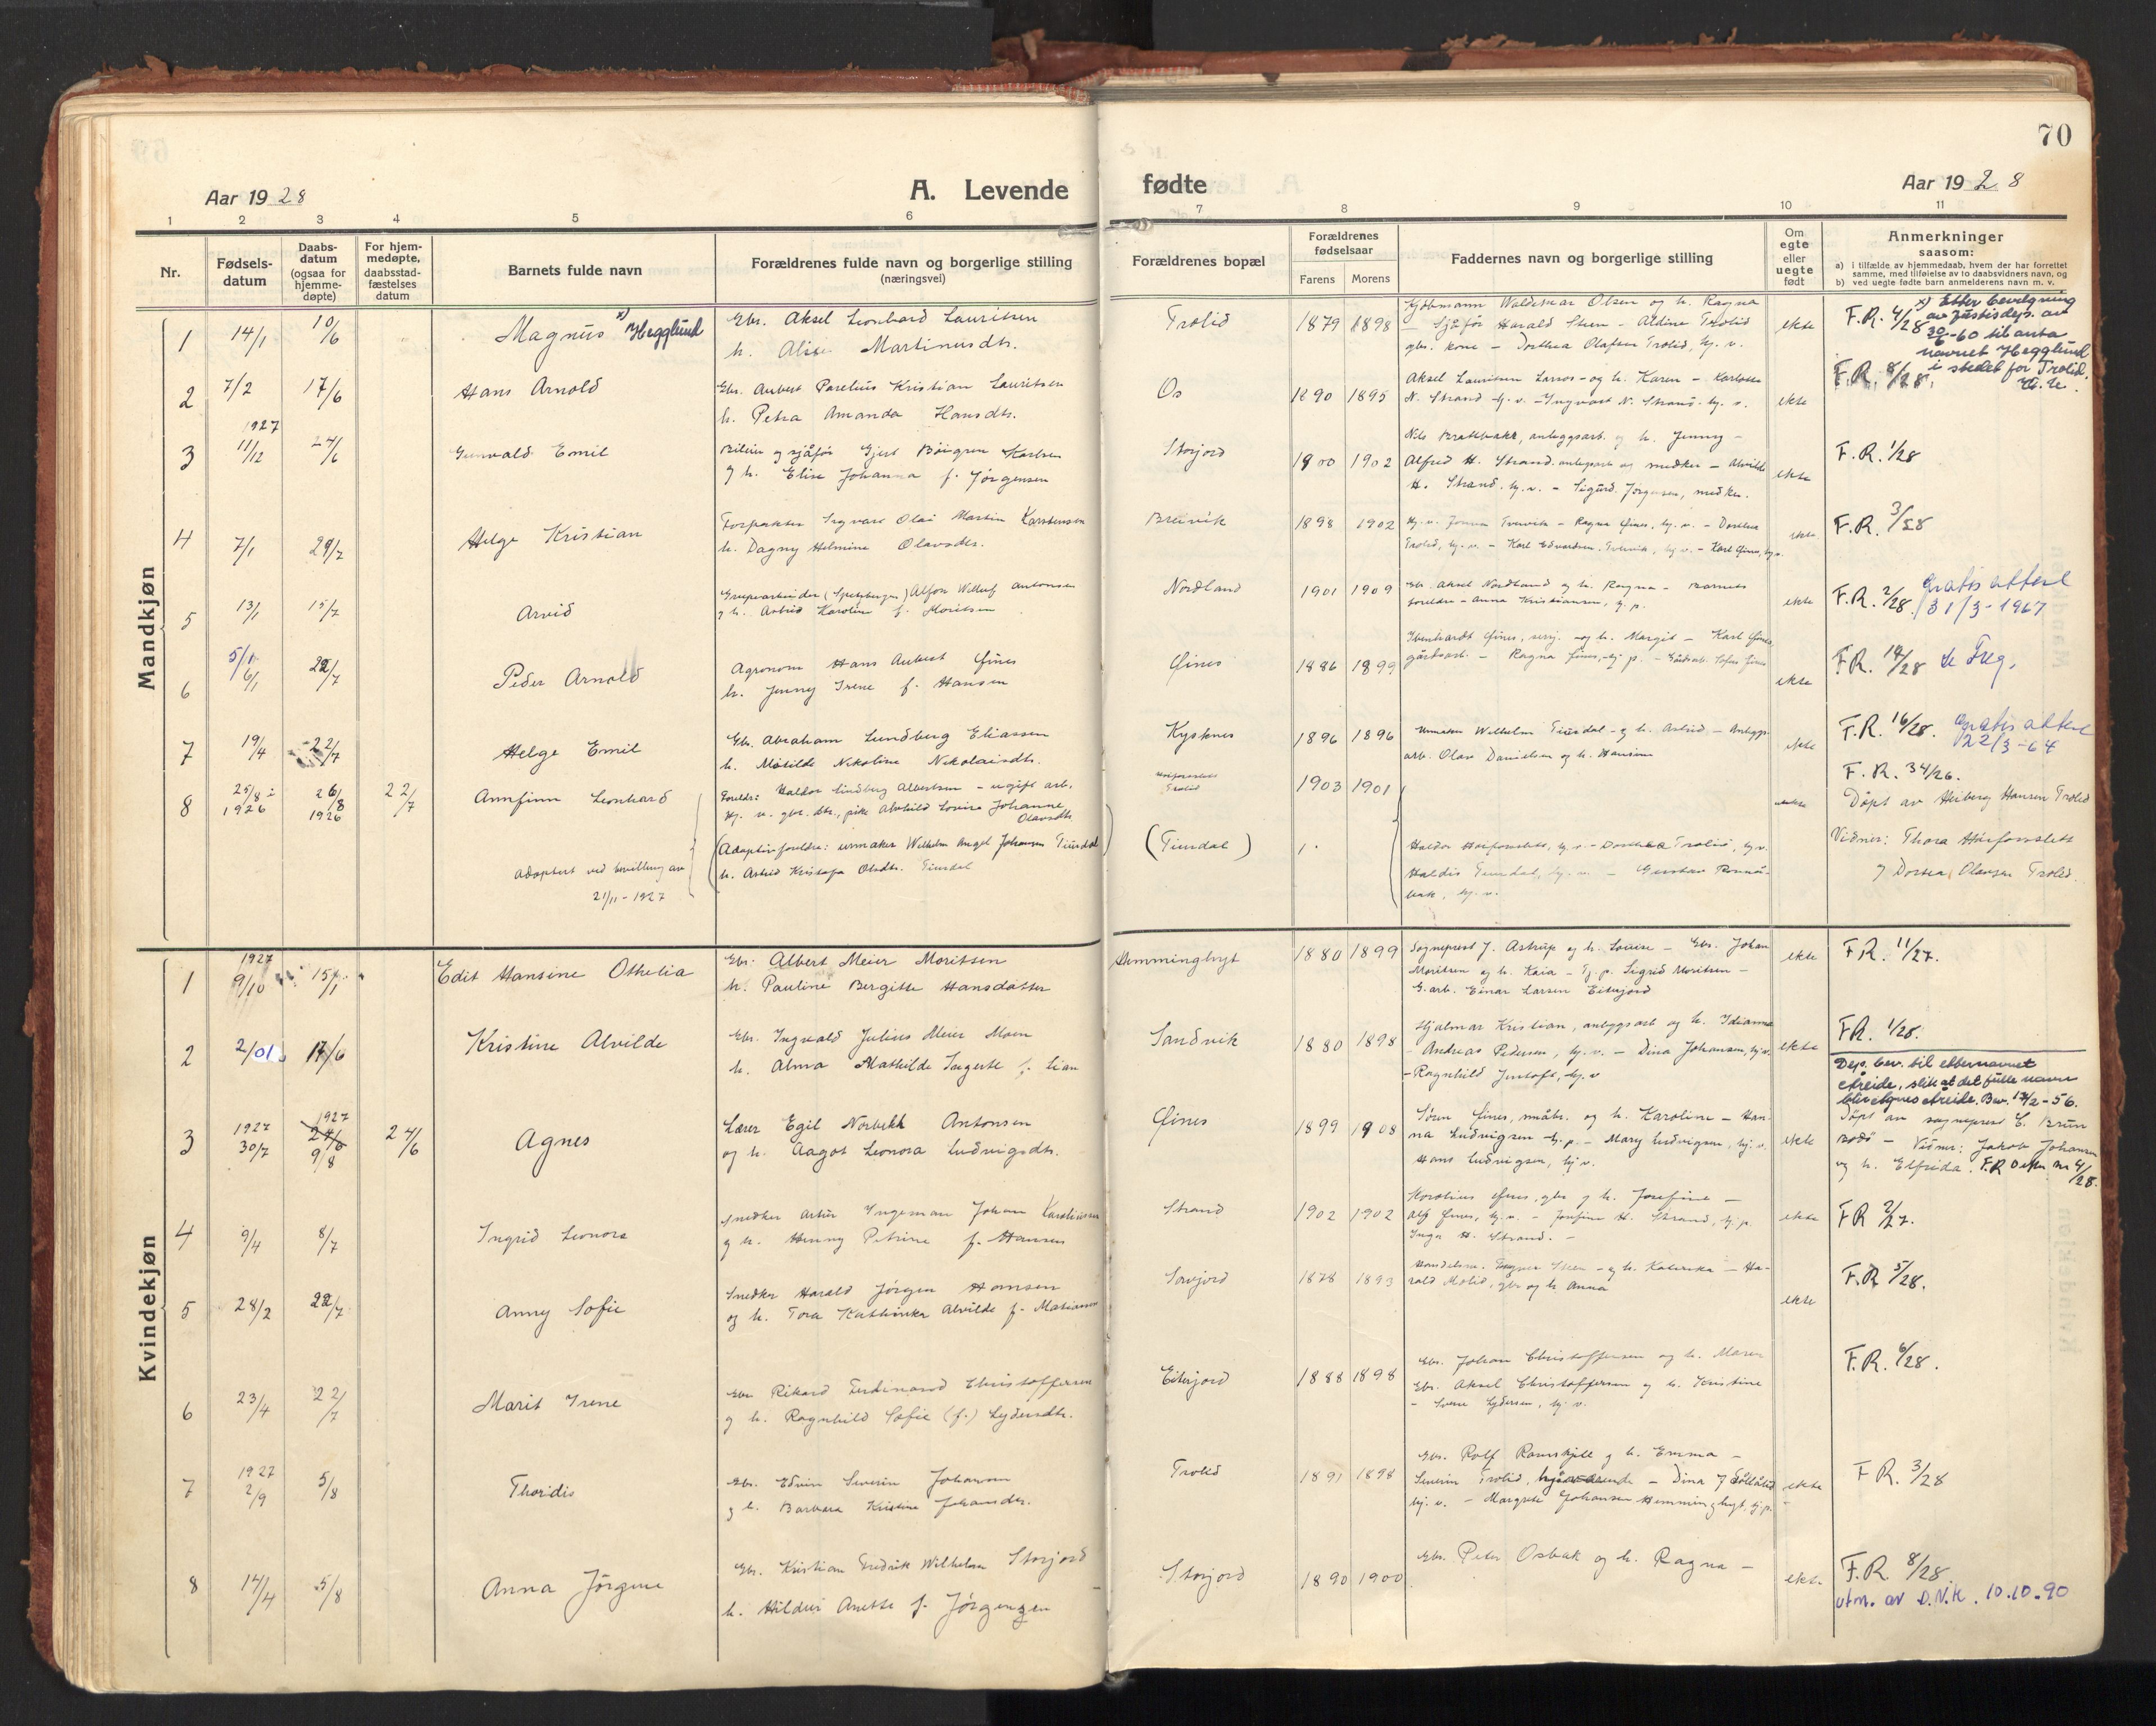 70
Aar 1928
A. Levende
fødte
Aar 1928
1 2 3 4 5 6 7 8 9 10 11
Nr.
Fødsels-
datum
Daabs-
datum
(ogsaa for
hjemme-
døpte)
For hjem-
medøpte,
daabsstad-
fæstelses
datum
Barnets fulde navn
Forældrenes fulde navn og borgerlige stilling
(næringsvei)
Forældrenes bopæl
Forældrenes
fødselsaar
Farens Morens
Faddernes navn og borgerlige stilling
Om
egte
eller
uegte
født
Anmerkninger
saasom:
a) i tilfælde av hjemmedaab, hvem der har forrettet
samme, med tilføielse av to daabsvidners navn, og
b) ved uegte fødte barn anmelderens navn m. v.
Mandkjøn
1 14/1 10/6 Magnus x) Hegglund
Gbr. Aksel Leonhard Lauritsen
h. Alise Martinusdtr.
Trolid 1879 1898
Waldemar Olsen og h. Ragna
- Sjåfør Harald Steen - Aldine Trolid
gbr. kone - Dorthea Olafsen Trolid, hj. v.
ekte
F.R. 4/28
x) Etter bevilgning
av Justisdep. av
30/6-60 til anta
navnet Hegglund
i stedet for Trolid.
2 7/2 17/6 Hans Arnold
Gbr. Aubert Parelius Kristian Lauritsen
h. Petra Amanda Hansdtr.
Os 1890 1895
Aksel Lauritsen - og h. Karen -
N. Strand hj. v. - Ingvart N. Strand hj. v.
ekte
F.R. 8/28.
3 1927 11/12 24/6 Gunvald Emil
Bileier og sjåfør Gjert Karlsen
og h. Elise Johanna f. Jørgensen
Storjord 1900 1902
Nils Brattbakk, anleggsarb. og h. Jenny -
Alfred H. Strand, og snedker - Alvilde
H. Strand, hj. v. - Sigurd Jørgensen, snedker.
ekte
F.R. 1/28
4 7/1 29/7 Helge Kristian
Forpakter Ingvard Olai Martin Karstensen
h. Dagny Helmine Olavsdtr.
Breivik 1898 1902
hj. v. - Ragna Øines, hj. v. - Dorthea
Trolid, hj. v. - Karl Edvardsen, hj. v. - Karl Øines, hj. v.
ekte
F.R. 3/28
5 13/1 15/7 Arvid
Gruvearbeider (Spetsbergen) Alfon Antonsen
og h. Astrid Karoline f. Moritsen
Nordland 1901 1909
Gbr. Aksel Nordland og h. Ragna - Barnets
foreldre - Anna Kristiansen, hj. p.
ekte
F.R. 2/28. Gratis attest
31/3-1967
6 5/1 6/1 22/7 Peder Arnold
Agronom Hans Aubert Øines
h. Jenny Irene f. Hansen
Øines 1886 1899
Øines, - og h. Margit - Karl Øines,
gårdsarb. - Ragna Øines, hj. p. - Sofus Øines
ekte
F.R. 14/28
7 19/4 22/7 Helge Emil
Gb. Abraham Lundberg Eliassen
h. Matilde Nikoline Nikolaisdtr.
Kysknes 1896 1896
Urmaker Wilhelm Tiurdal - og h. Astrid - Anleggs-
arb. Olav Danielsen og h. Hansine
ekte
F.R. 16/28. Gratis attest
22/3-64
8 25/8 1926 26/8 1926 22/7 Annfinn Leonhard
Foreldr: Haldor Lindberg Albertsen - ugift arb.
Hj. v. gbr. dtr., pike Alvhild Lovise Johanne
Olavsdtr.
Trolid 1903 1901
uekte
F.R. 34/26.
Døpt av Heiberg Hansen Trolid
(Adoptivforeldre: urmaker Wilhelm Angel Johansen Tiurdal
h. Astrid Kristofa Olsdtr. Tiurdal)
adoptert ved bevilling av
21/11-1927
(Tiurdal)
hj. v. - Dorthea Trolid, hj. v.
Haldis Tiurdal, hj. v. - Gustav
bak, hj. v.
Vidner: Thora
og Dortea Olavsen Trolid.
Kvindekjøn
1 1927 9/10 15/1 Edit Hansine Othelia
Gbr. Albert Meier Moritsen
h. Pauline Bergitte Hansdatter
Hemminghyt 1880 1899
Sogneprest J. Astrup og h. Louise - Gbr. Johan
Moritsen og h. Kaia - hj. p. Sigrid Moritsen -
G. arb. Einar Larsen Eiterjord
ekte
F.R. 11/27.
2 2/01 17/6 Kristine Alvilde
Gbr. Ingvald Julius Meier Moen
h. Alma Mathilde Ingerte f. Lian
Sandvik 1880 1898
Hjalmar Kristian, anleggsarb og h. Idianna
- Andreas Pedersen, hj. v. - Dina Johansen, hj. v.
- Ragnhild Justoft, hj. v
ekte
F.R. 1/28.
3 1927 30/7 1927 24/6 9/8 24/6 Agnes
Lærer Egil Norbekk Antonsen
og h. Aagot Leonora Ludvigsdtr.
Øines 1899 1908
Søren Øines, småbr. og h. Karoline - Han-
na Ludvigsen hj. p. - Mary Ludvigsen, hj. v.
Hans Ludvigsen, hj v.
ekte
Dep. bev. til etternavnet
Areide, slik at det fulle navn
blir Agnes Areide. Bev. 17/2-56.
Døpt av sogneprest E. Brun
Bodø - Vidner: Jakob Johansen
og h. Elfrida. F.R 4/28.
4 9/4 8/7 Ingrid Leonora
Snedker Artur Ingeman Johan Karoliussen
og h. Henny Petrine f. Hansen
Strand 1902 1902
Karolius Øines, gbr og h. Josefine -
Alf Øines, hj. v. - Josefine H. Strand, hj. p.
Inga H. Strand. -
ekte
FR 2/27.
5 28/2 22/7 Anny Sofie
Snedker Harald Jørgen Hansen
og h. Tora Kathinka Alvilde f. Matiassen
Storjord 1878 1893
Steen - og h. Katinka - Ha-
rald Molid, gbr og h Anna
ekte
F.R 5/28.
6 23/4 22/7 Marit Irene
Gbr Rikard Ferdinand Christoffersen
og h. Ragnhild Sofie (f.) Lydersdtr.
Eiterjord 1888 1898
Gbr. Johan Christoffersen og h. Maren
Gbr. Aksel Christoffersen og h. Kristine
- Sverre Lydersen, hj. v.
F.R. 6/28.
7 1927 2/9 5/8 Thordis
Gbr. Edvin Severin Johansen
og h. Barbara Kristine Johansdtr.
Trolid 1891 1898
Gbr. Rolf Ramskjell og h. Emma -
Severin Trolid, hjemmeværende - Dina J
hj. v. - Margrete Johansen Hemminghyt, hj. p.
ekte
F R. 3/28
8 17/4 5/8 Anna Jørgine
Gbr. Kristian Fredrik Wilhelm Storjord
h. Hildur Anette f. Jørgensen
Storjord 1890 1900
Gbr. Peter Osbak og h. Ragna -
ekte
F.R. 8/28
utm. av D.N.K. 10.10.90